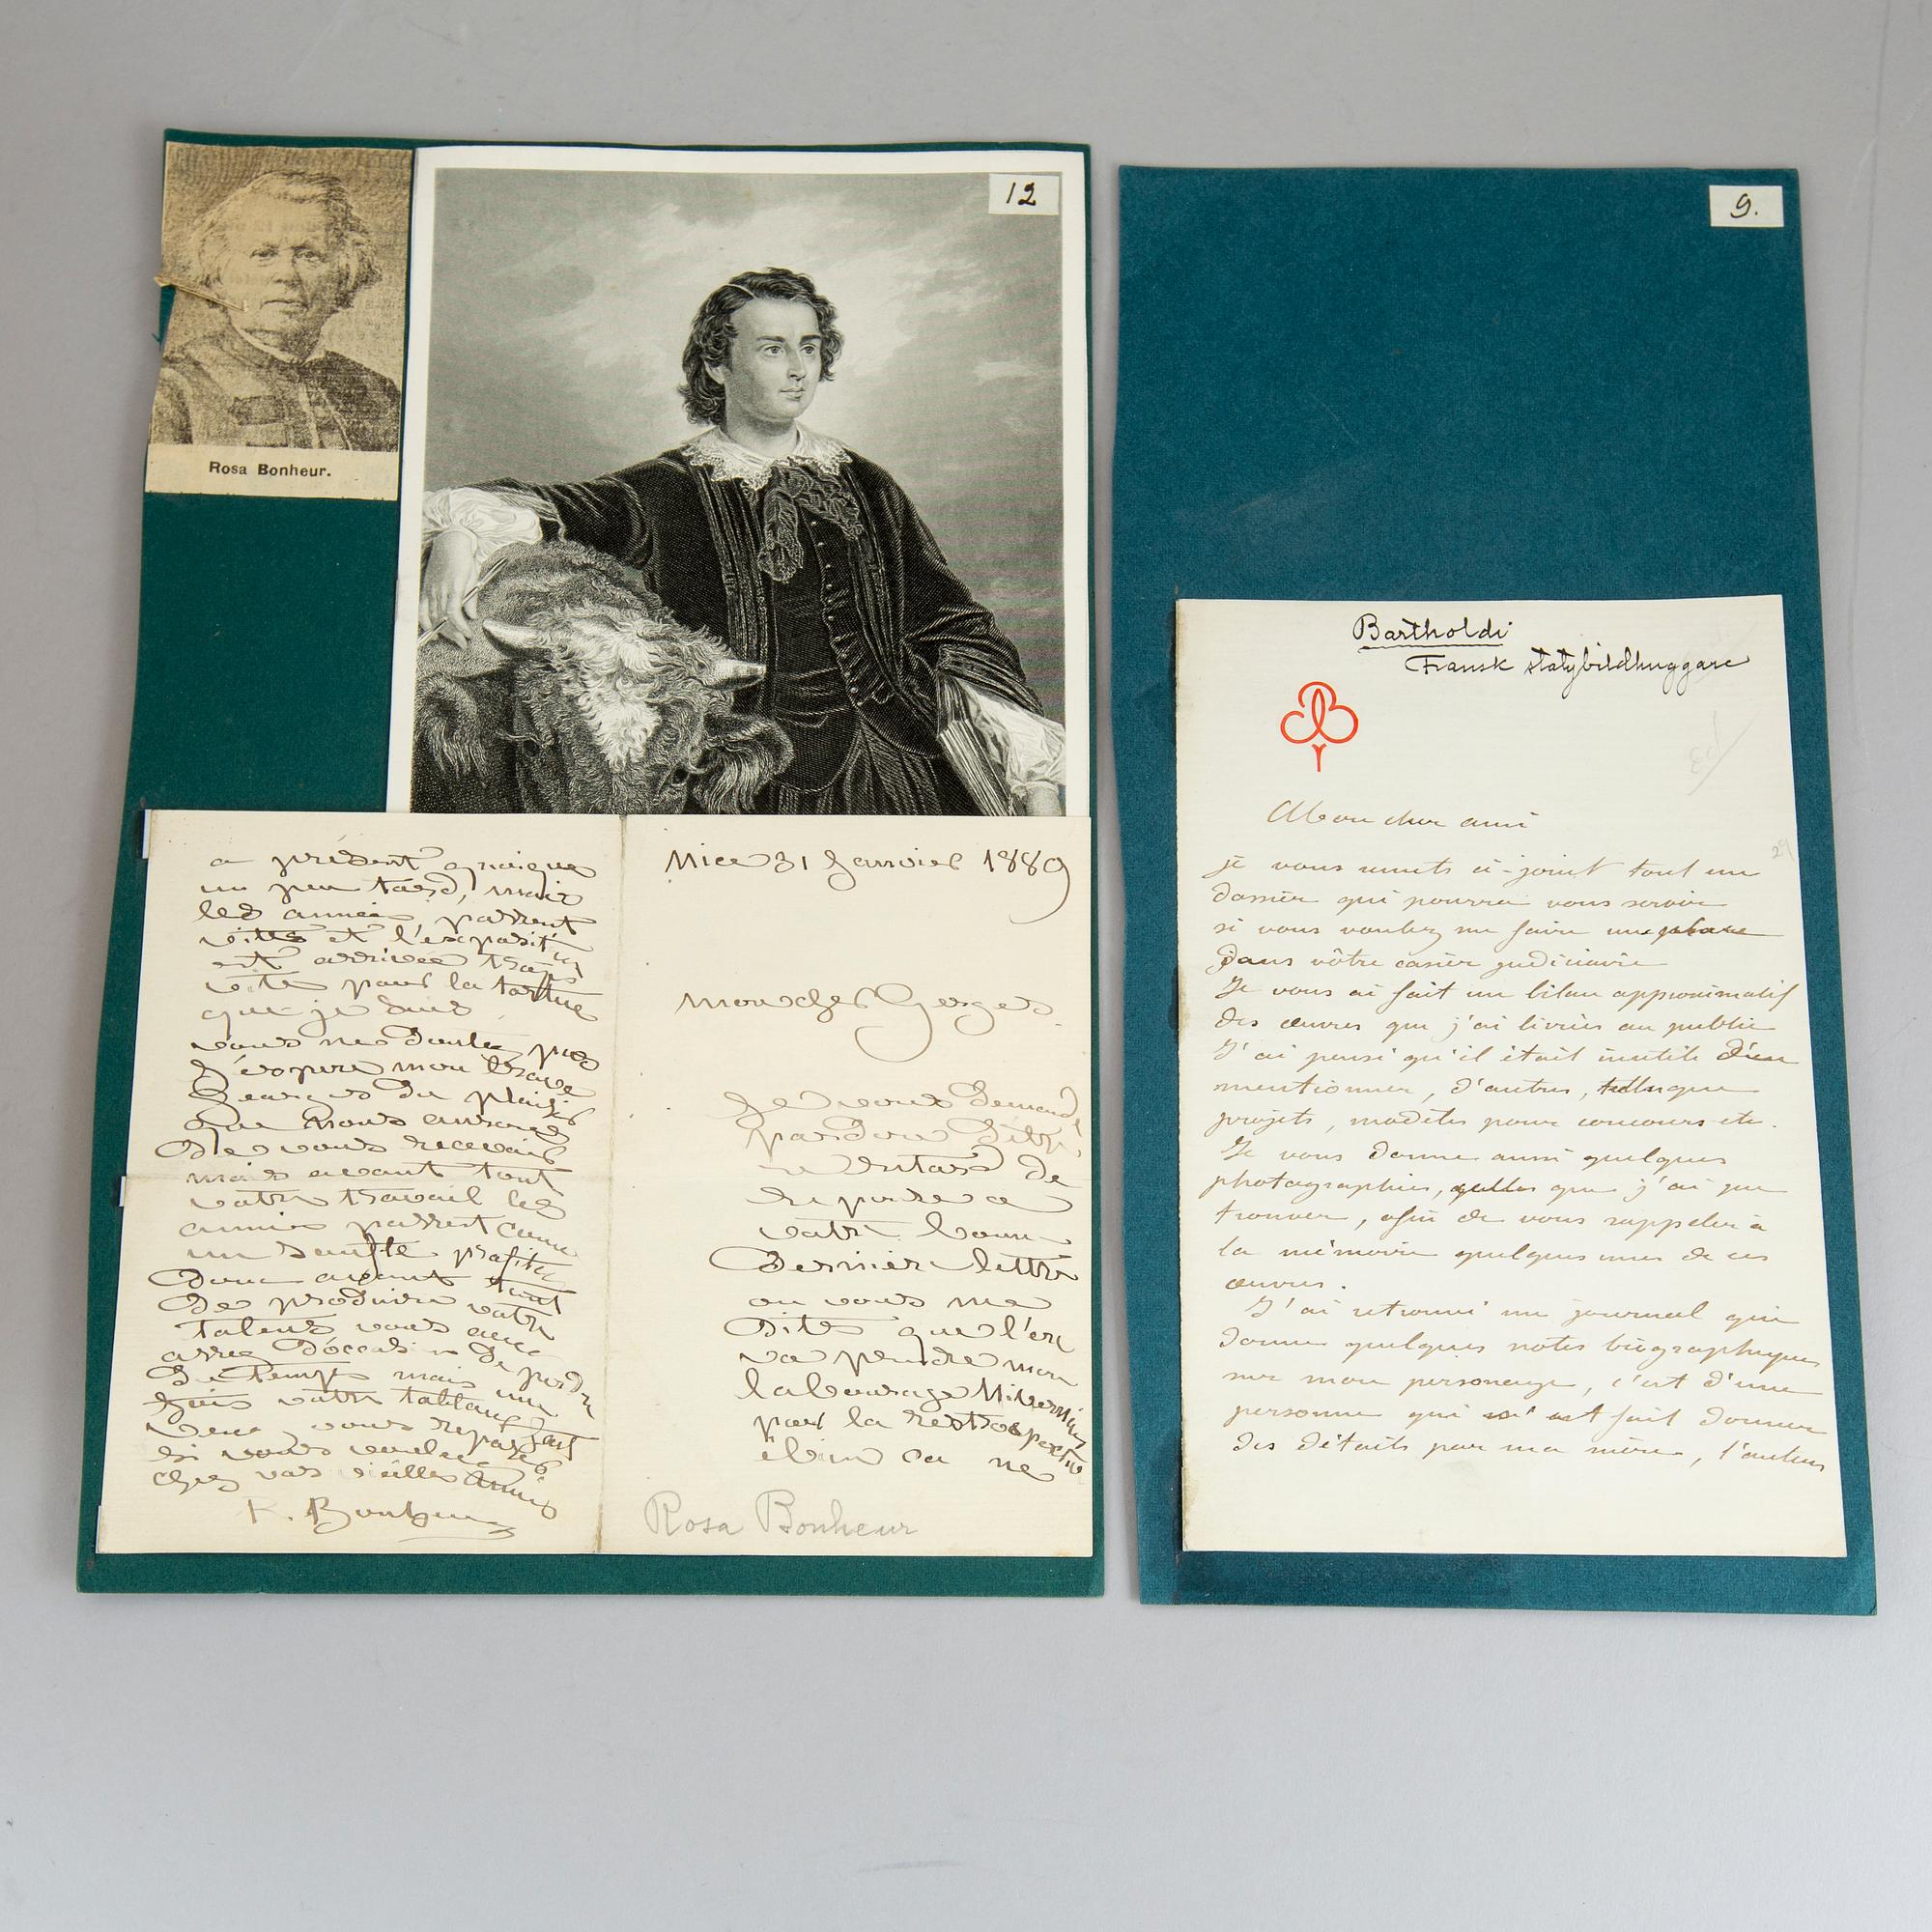 Rosa Bonheur.
12
a présent quoique
un peu tard, mais
les années passent
vites et l'exposit
est arrivée trop
vite pour la tortue
que je suis
vous ne doutez pas
j'espère mon brave
Georges du plaisir
que nous aurons
De vous recevoir
mais avant tout
votre travail les
années passent comme
un souffle profitez
Donc avant tout
De produire votre
talent vous avez
assez d'occasion De perdre
Du temps mais une
fois votre tableau fait
venez vous reposer
si vous voulez
chez vos vieilles amies
R. Bonheur
Nice 31 Janvier 1889
mon cher Georges
Je vous demande
pardon D'être
en retard de
réponse a
votre bonne
Dernière lettre
ou vous me
Dites que l'on
va prendre mon
labourage Nivernais
pour la restrospective
et bien ca ne
Rosa Bonheur
9.
Bartholdi
Fransk statybildhuggare
Mon cher ami
je vous remets ci-joint tout un
dossier qui pourra vous servir
si vous voulez me faire une place
Dans vôtre casier judiciaire
Je vous ai fait un bilan approximatif
des œuvres que j'ai livrées au public
J'ai pensé qu'il était inutile d'en
mentionner, d'autres, telles que
projets, modèles pour concours etc.
Je vous donne aussi quelques
photographies, que j'ai pu
trouver, afin de vous rappeler à
la mémoire quelques unes de ces
œuvres.
J'ai retrouvé un journal qui
donne quelques notes biographiques
sur mon personnage, c'est d'une
personne qui s'est fait donner
des détails par ma mère, l'auteur